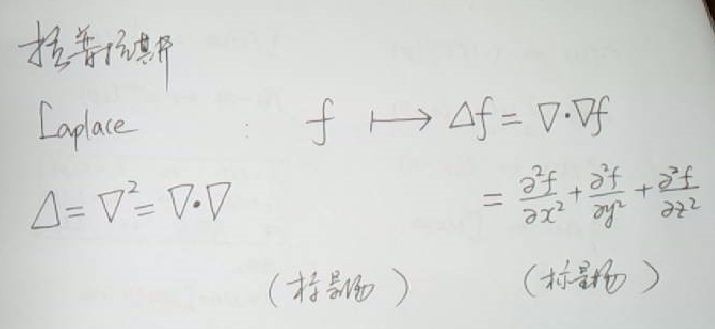 拉普拉斯
Laplace : f ⟼ Δf = ∇·∇f
Δ = ∇² = ∇·∇
= ∂²f/∂x² + ∂²f/∂y² + ∂²f/∂z²
(标量场) (标量场)